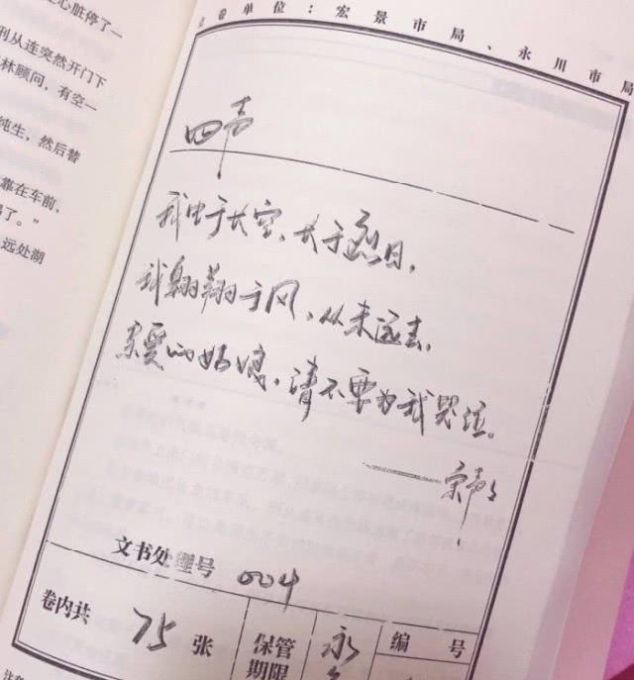 心脏停了一
刑从连突然开门下
林顾问，有空一
纯生，然后替
靠在车前，
了。”
远处湖
卷单位：宏景市局、永川市局
四声
我生于长空、长于烈日，
我翱翔于风、从未远去，
亲爱的姑娘，请不要为我哭泣。
——宋声声
文书处理号 004
卷内共 75 张
保管
期限
永
编 号